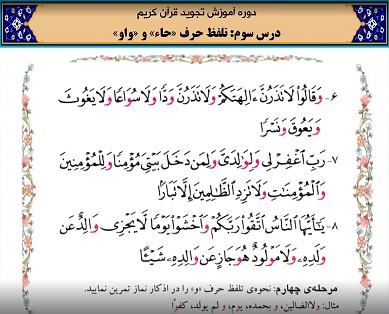 دوره آموزش تجوید قرآن کریم
درس سوم: تلفظ حرف «حاء» و «واو»
۶- وَقَالُوا۟ لَا تَذَرُنَّ ءَالِهَتَكُمْ وَلَا تَذَرُنَّ وَدًّا وَلَا سُوَاعًا وَلَا يَغُوثَ
وَيَعُوقَ وَنَسْرًا
۷- رَبِّ اغْفِرْ لِى وَلِوَٰلِدَىَّ وَلِمَن دَخَلَ بَيْتِىَ مُؤْمِنًا وَلِلْمُؤْمِنِينَ
وَالْمُؤْمِنَٰتِ وَلَا تَزِدِ الظَّٰلِمِينَ إِلَّا تَبَارًا
۸- يَٰٓأَيُّهَا النَّاسُ اتَّقُوا۟ رَبَّكُمْ وَاخْشَوْا۟ يَوْمًا لَّا يَجْزِى وَالِدٌ عَن
وَلَدِهِۦ وَلَا مَوْلُودٌ هُوَ جَازٍ عَن وَالِدِهِۦ شَيْـًٔا
مرحله‌ی چهارم: نحوه‌ی تلفظ حرف «و» را در اذکار نماز تمرین نمایید.
مثال: ولاالضالین، و بحمده، یوم، و لم یولد، کفوًا